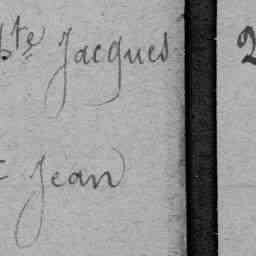 bte Jacques 2
t Jean